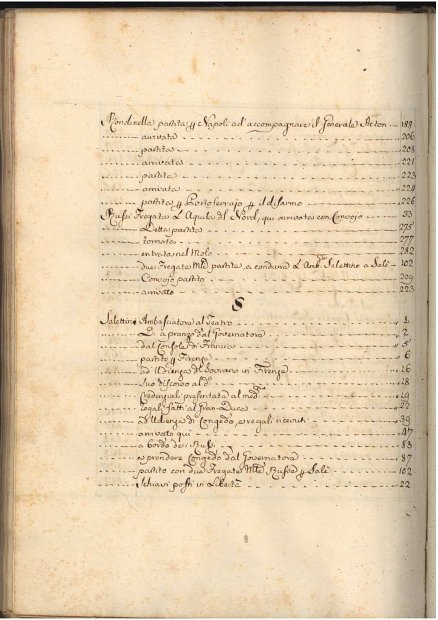 Rondinella partita p Napoli ad' accompagnare il Generale Acton 188
arrivata 206
partita 208
arrivata 221
partita 223
arrivata 224
partita p Portoferrajo p il disarmo 226
Russi Fregata L'Aquila del Nord, qui arrivata con Convojo 33
Detta partita 275
tornata 277
entrata nel Molo 282
due Fregate partite a condurre L'Amb. Salettino a Salè 102
Convojo partito 209
arrivato 223
S
Salettino Ambasciatore al Teatro 1
D. a pranzo dal Governatore 2
dal Console di Francia 5
partito p Firenze 6
ad Udienza del Sovrano in Firenze 16
suo discorso al d. 18
Credenziali presentate al med. 19
regali fatti al Gran Duca
ad Udienza di Congedo, e regali ricevuti 39
arrivato qui 47
a bordo dei Russi 83
a prendere Congedo dal Governatore 87
partito con due Fregate Russe p Salè 102
Schiavi posti in Libertà 22